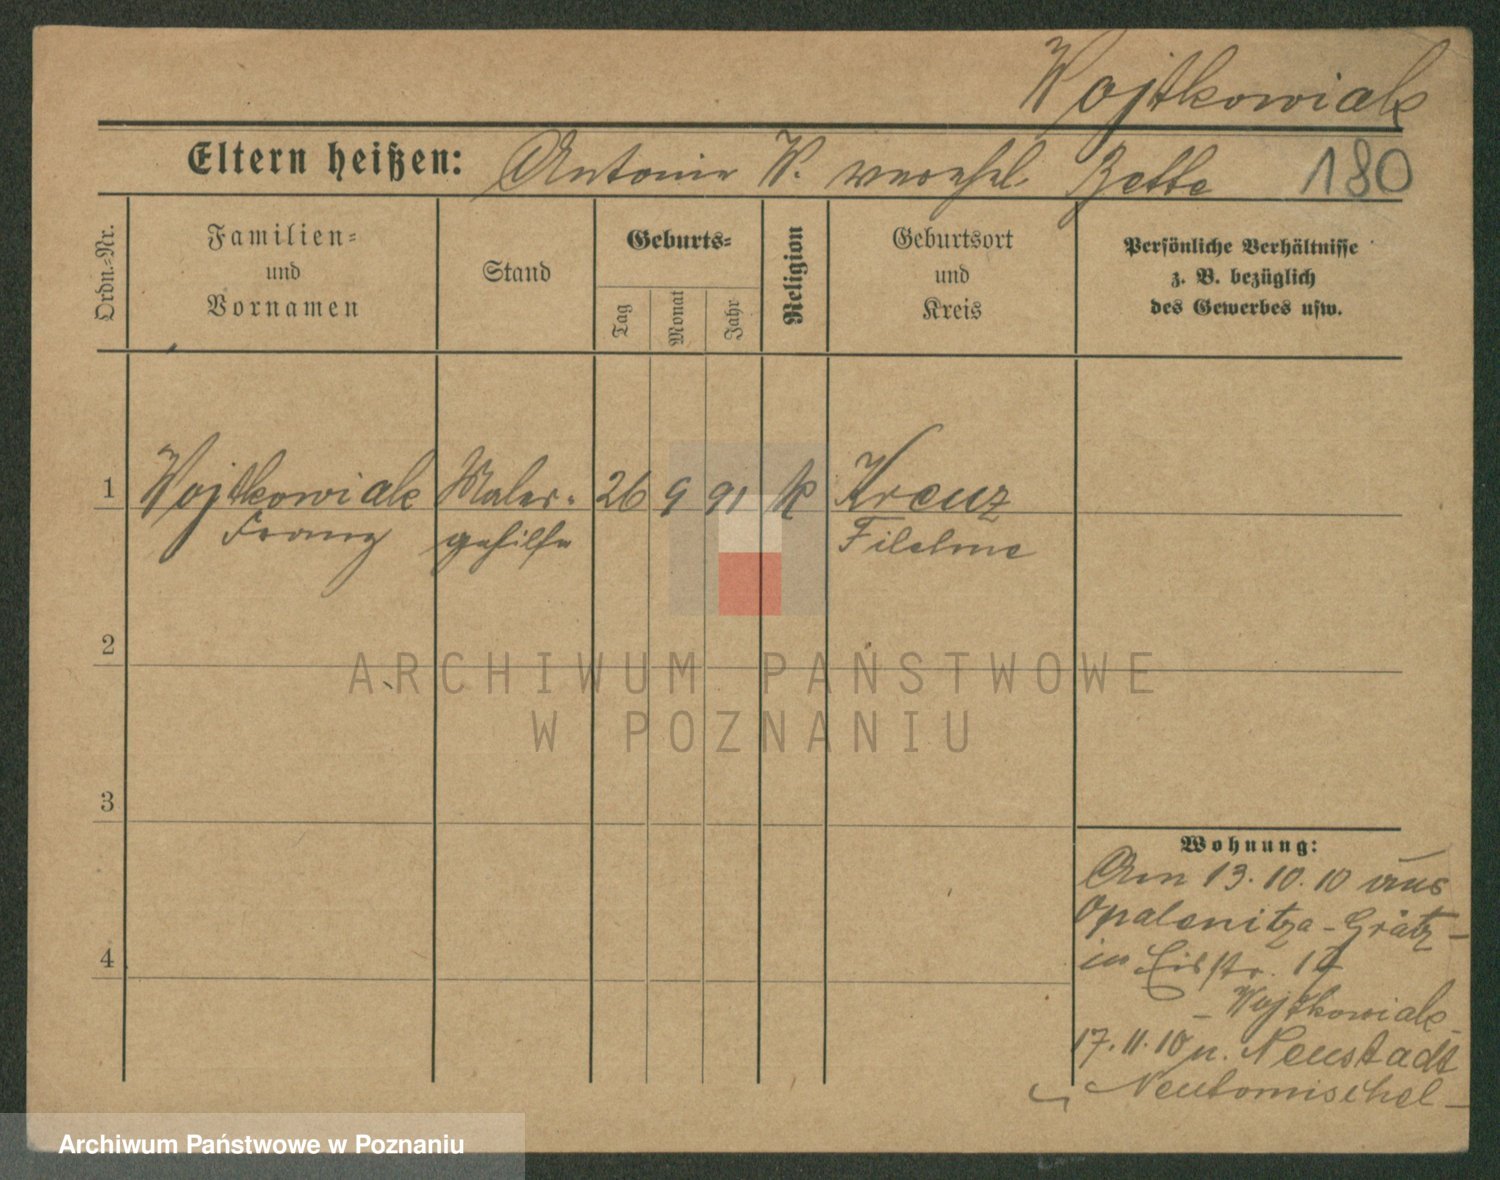 Wojtkowiak
Eltern heißen: Antonie W. verehel. Zette 180
Ordn.-Nr.
Familien-
und
Vornamen
Stand
Geburts-
Tag
Monat
Jahr
Religion
Geburtsort
und
Kreis
Persönliche Verhältnisse
z. B. bezüglich
des Gewerbes usw.
1 Wojtkowiak Maler- 26 9 91 k Kreuz
Franz gehilfe Filehne
2
3
4
Wohnung:
Am 13.10.10 aus
Opalenitza-Grätz-
in
- Wojtkowiak -
17.11.10 n. Neustadt
Neutomischel -
ARCHIWUM PAŃSTWOWE
W POZNANIU
Archiwum Państwowe w Poznaniu